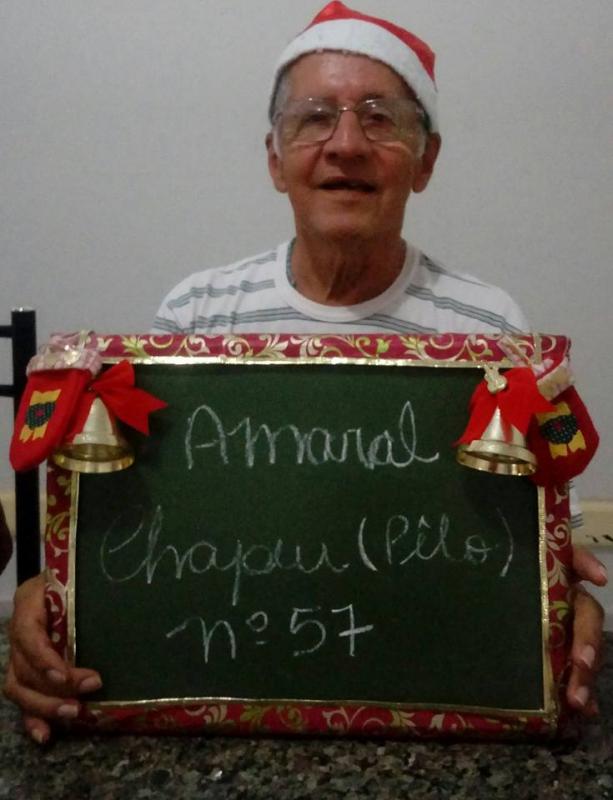 Amaral
Chapéu (Pêlo)
nº 57